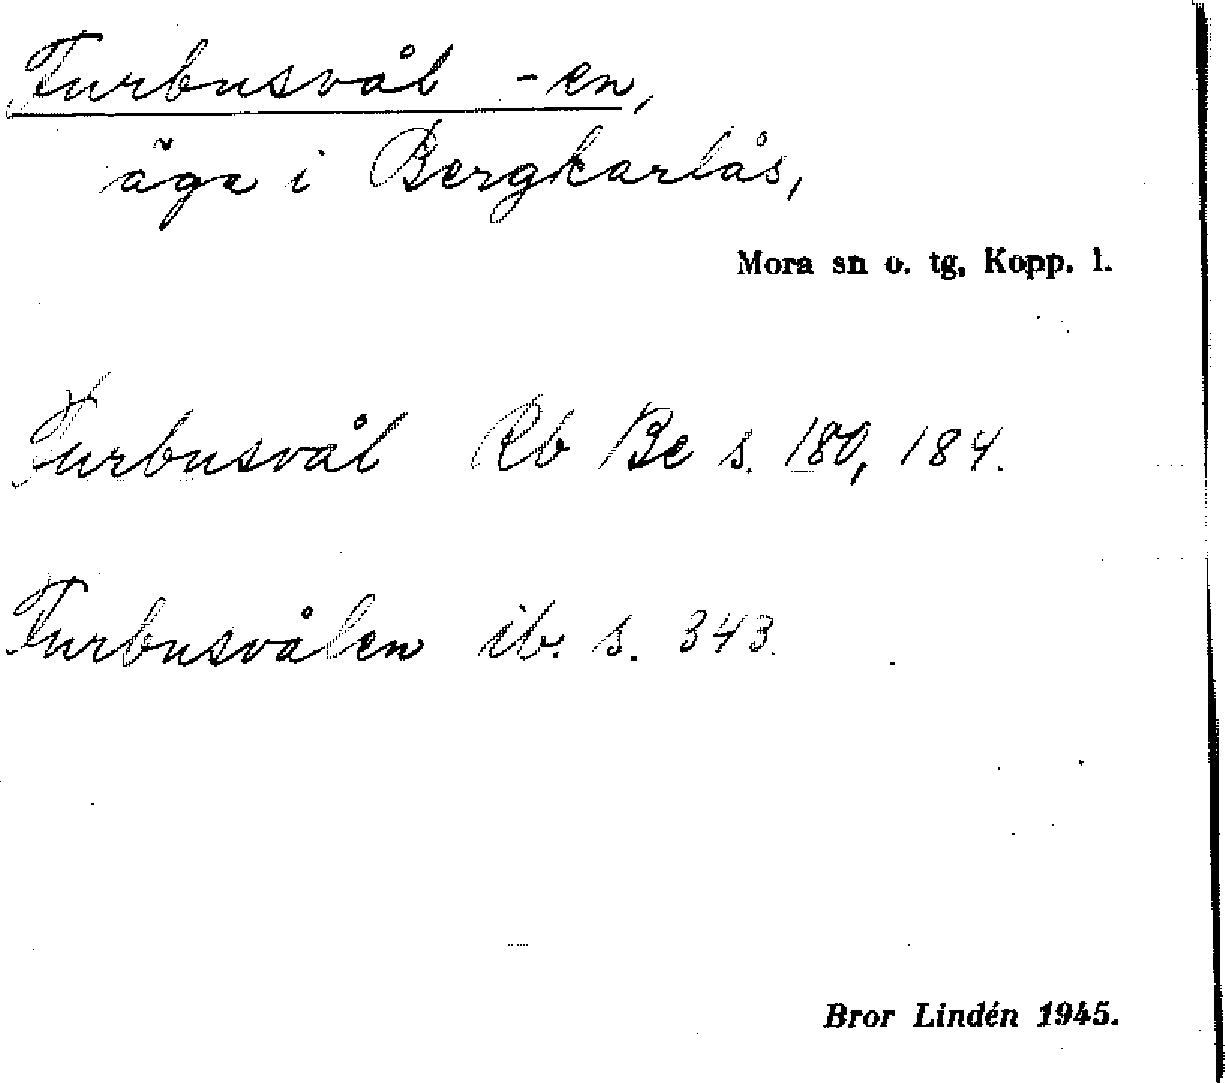 Furbusvål -en,
äga i Bergkarlås,
Mora sn o. tg, Kopp. l.
Furbusvål Rb Be s. 180, 184.
Furbusvålen ib. s. 343.
Bror Lindén 1945.